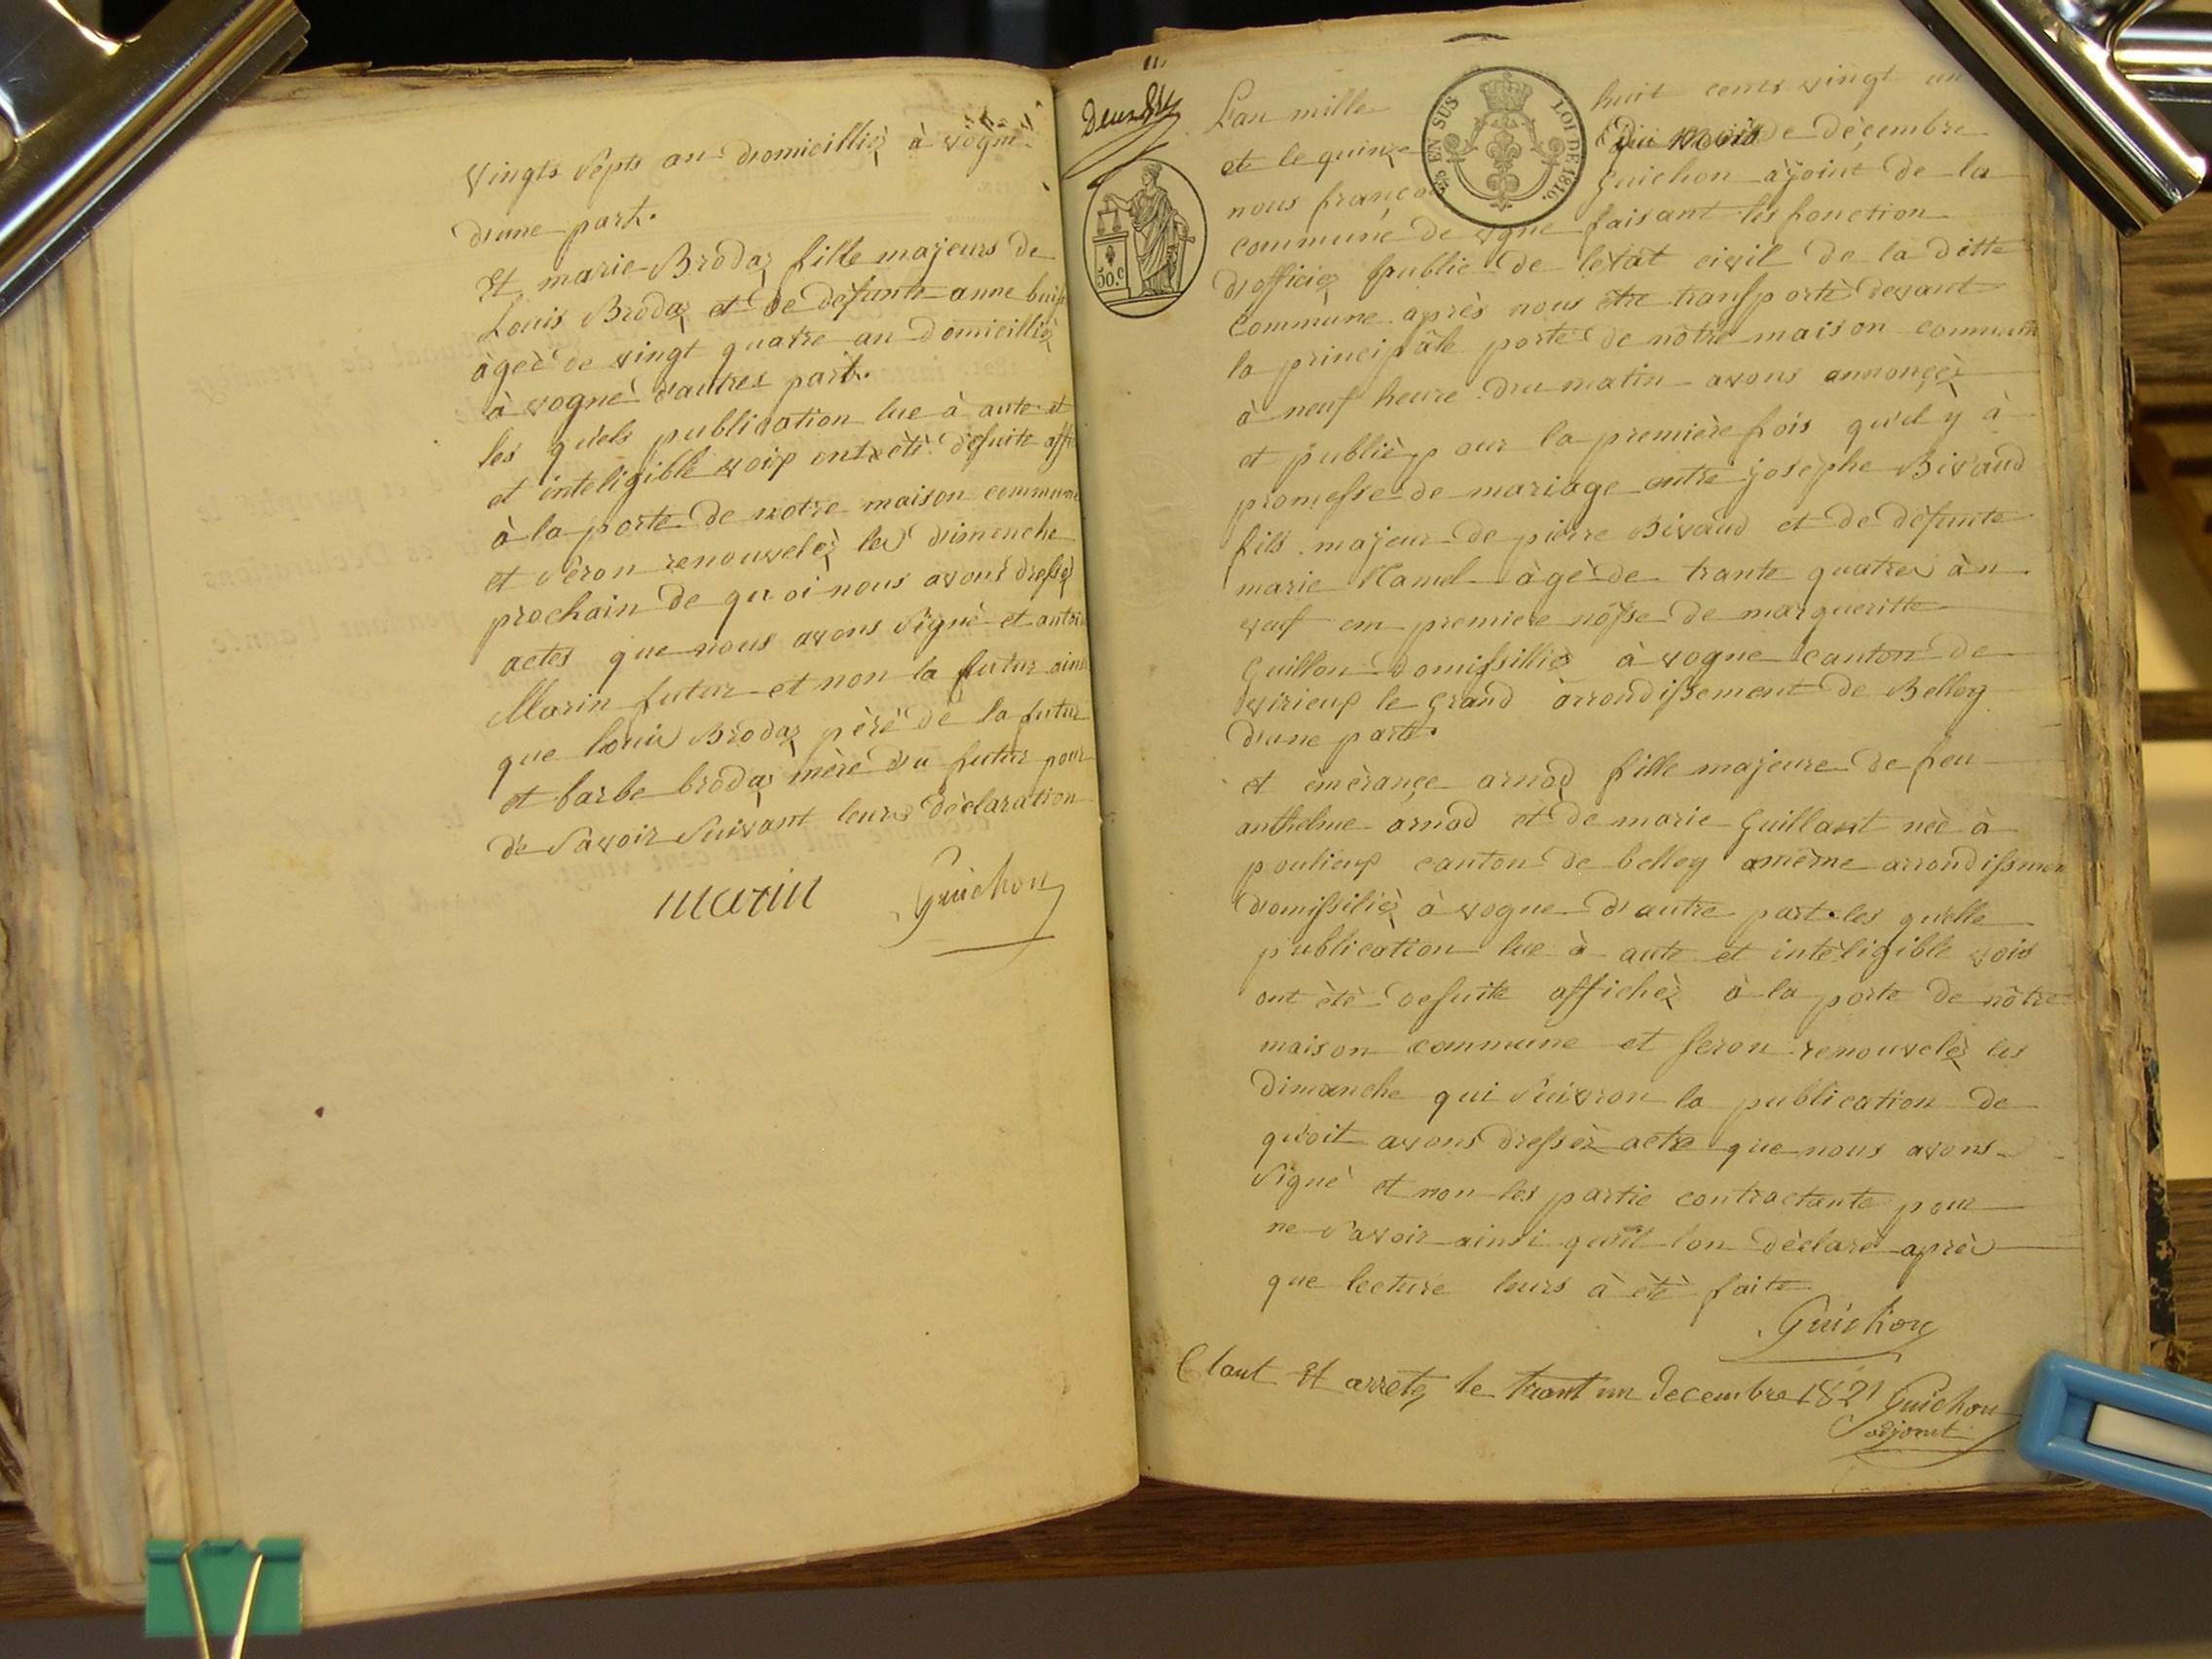 vingts septs an domicilliéz à vogne
d'une part.
Et marie Brodaz fille majeurs de
Louis Brodaz et de défunte anne
àgeé de vingt quatre an domicilliéz
à vogne d'autres part.
les quels publication lue à aute et
et inteligible voix ont été desuite
à la porte de notre maison commune
et séron renouveléz les dimenche
prochain de quoi nous avons dresséz
actes que nous avons signé et
Marin futur et non la futur
que louis Brodaz pére de la futur
et barbe brodaz mére du futur pour
de savoir suivant leurs déclaration
marin Guichon
L'an mille huit cents vingt un
et le quinze du mois de décembre
nous françois Guichon ajoint de la
commune de vogne faisant les fonction
d'officiez public de l'état civil de la ditte
commune après nous être transporté devant
la principâle porte de nôtre maison commune
à neuf heure du matin avons annonçéz
et publiéz pour la première fois qu'il ÿ à
promesse de mariage entre josephe Bivaud
fils majeur de pierre Bivaud et de défunte
marie àgé de trante quatre àn
veuf em premiere nôsse de margueritte
Guillon domissilliéz à vogne canton de
virieux le grand àrrondissement de Belley
d'une parte.
et émérançe arnod fille majeure de feu
anthelme arnod et de marie Guillant neé à
poulieux canton de belley même
domissiliéz à vogne d'autre part. les quelle
publicàtion lue à aute et intéligible voix
ont été desuite affichéz à la porte de nôtre
maison commune et seron renouveléz les
dimanche qui suivron la publication de
quoit avons dresséz acte que nous avons
signé et non les partie contractante pour
ne savoir ainsi qu'il l'on déclaré après
que lecture leurs à été faite
Guichon
Claut Et arretez le trant un decembre 1821 Guichon
adjoint
50.c
EN SUS
LOI DE 1816.